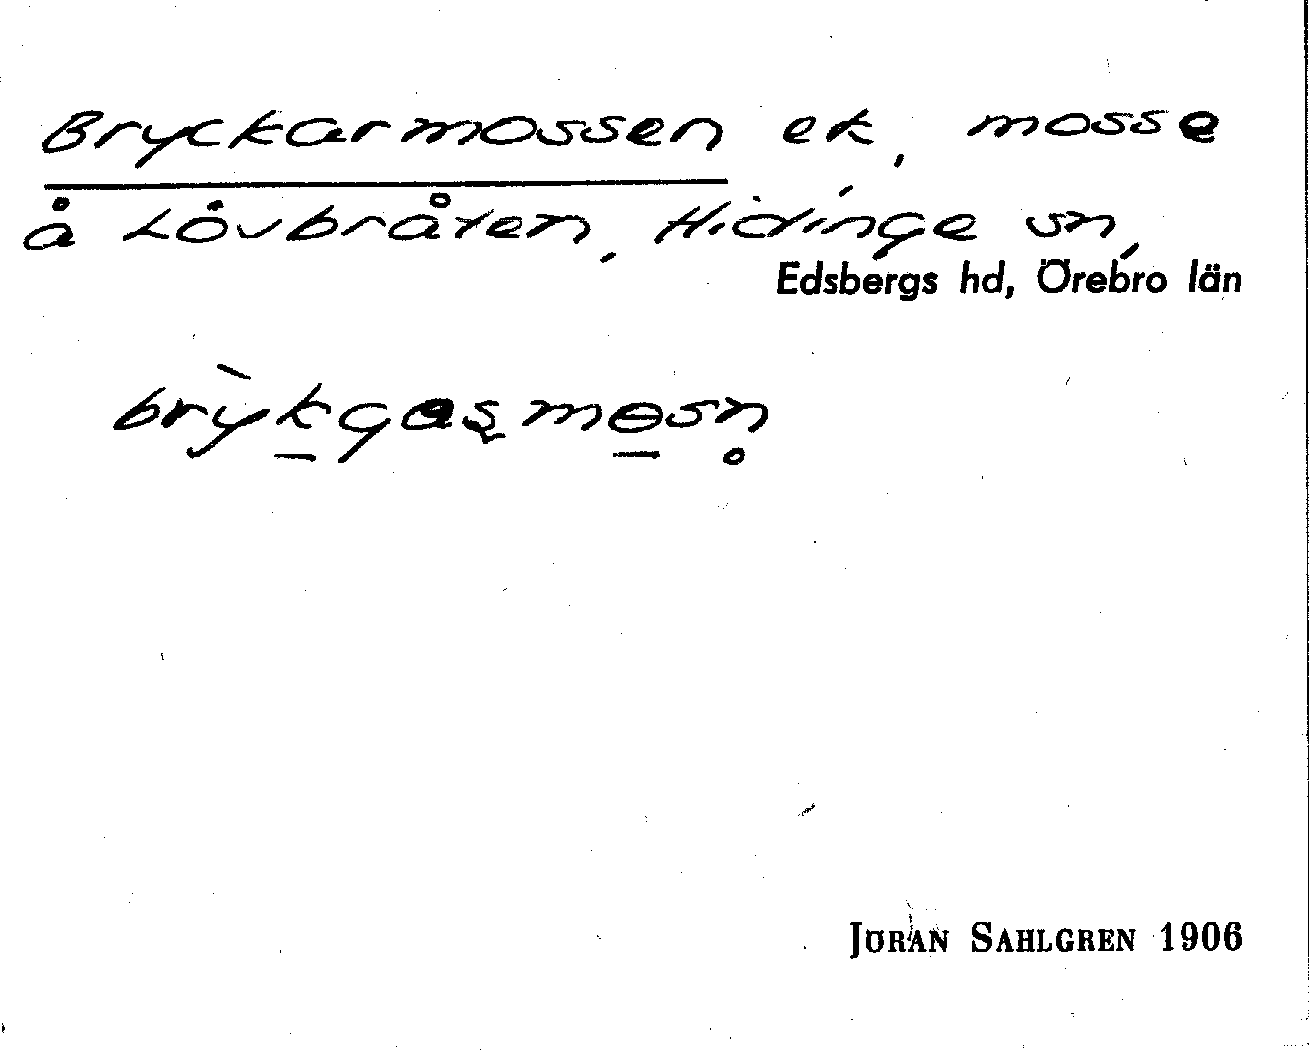 Bryckarmossen ek, mosse
å Lövbråten, Hidinge sn,
Edsbergs hd, Örebro län
JÖRAN SAHLGREN 1906